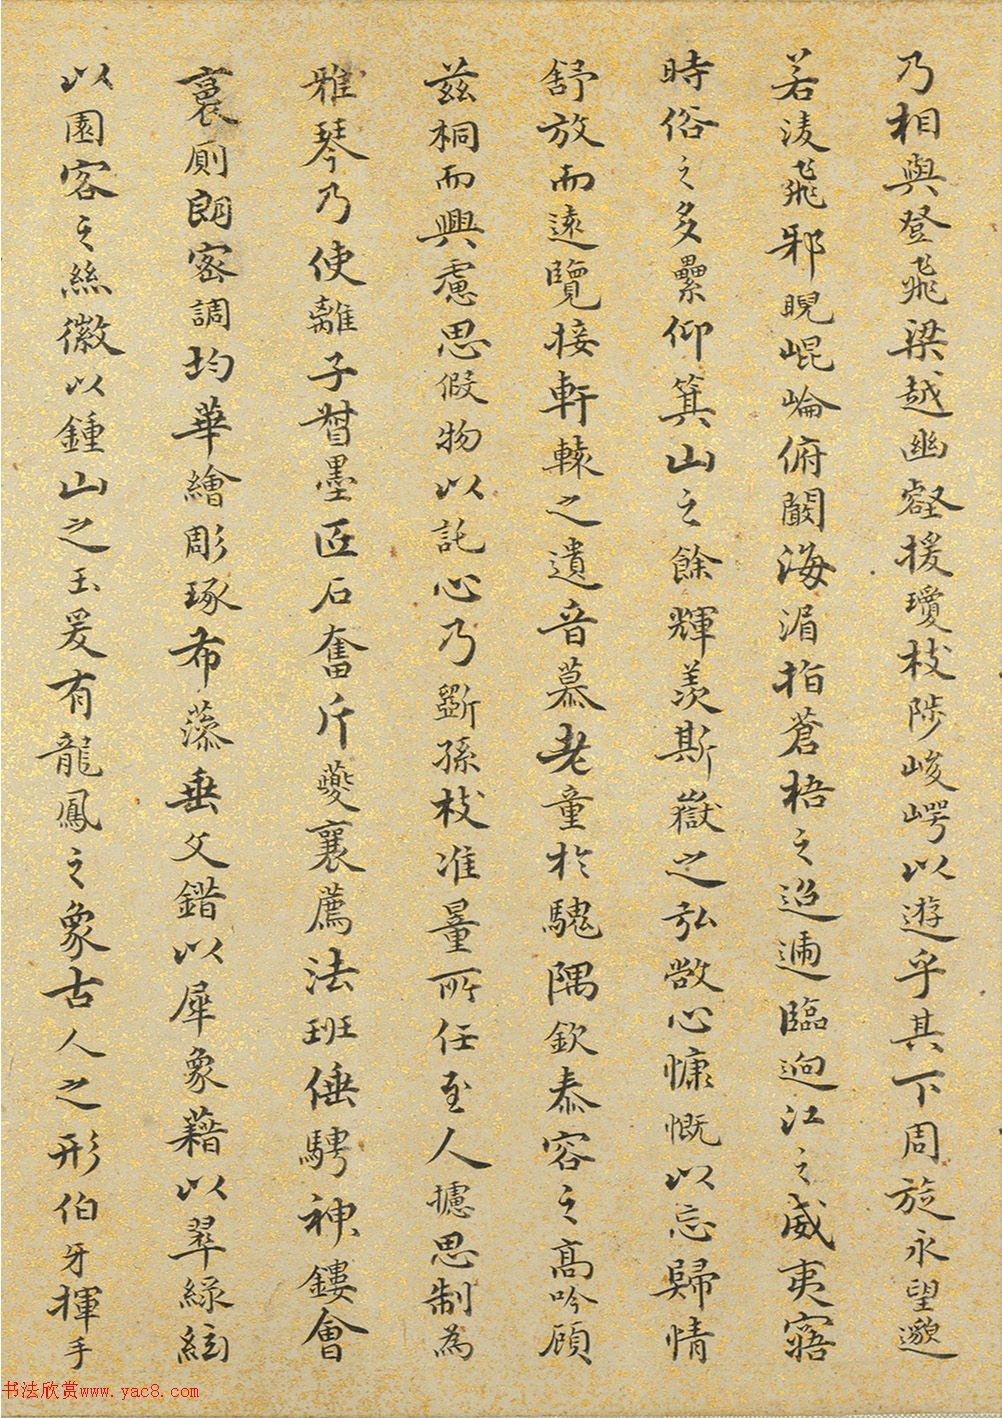 乃相與登飛梁越幽壑援瓊枝陟峻崿以遊乎其下周旋永望邈
若淩飛邪睨崐崘俯闞海湄指蒼梧之迢遞臨迥江之威夷寤
時俗之多累仰箕山之餘輝羨斯嶽之弘敞心慷慨以忘歸情
舒放而遠覽接軒轅之遺音慕老童於騩隅欽泰容之高吟顧
茲桐而興慮思假物以託心乃斲孫枝准量所任至人攄思制為
雅琴乃使離子督墨匠石奮斤夔襄薦法班倕騁神鎪會
裛厠朗密調均華繪彫琢布藻垂文錯以犀象藉以翠綠絃
以園客之絲徽以鍾山之玉爰有龍鳳之象古人之形伯牙揮手
书法欣赏www.yac8.com